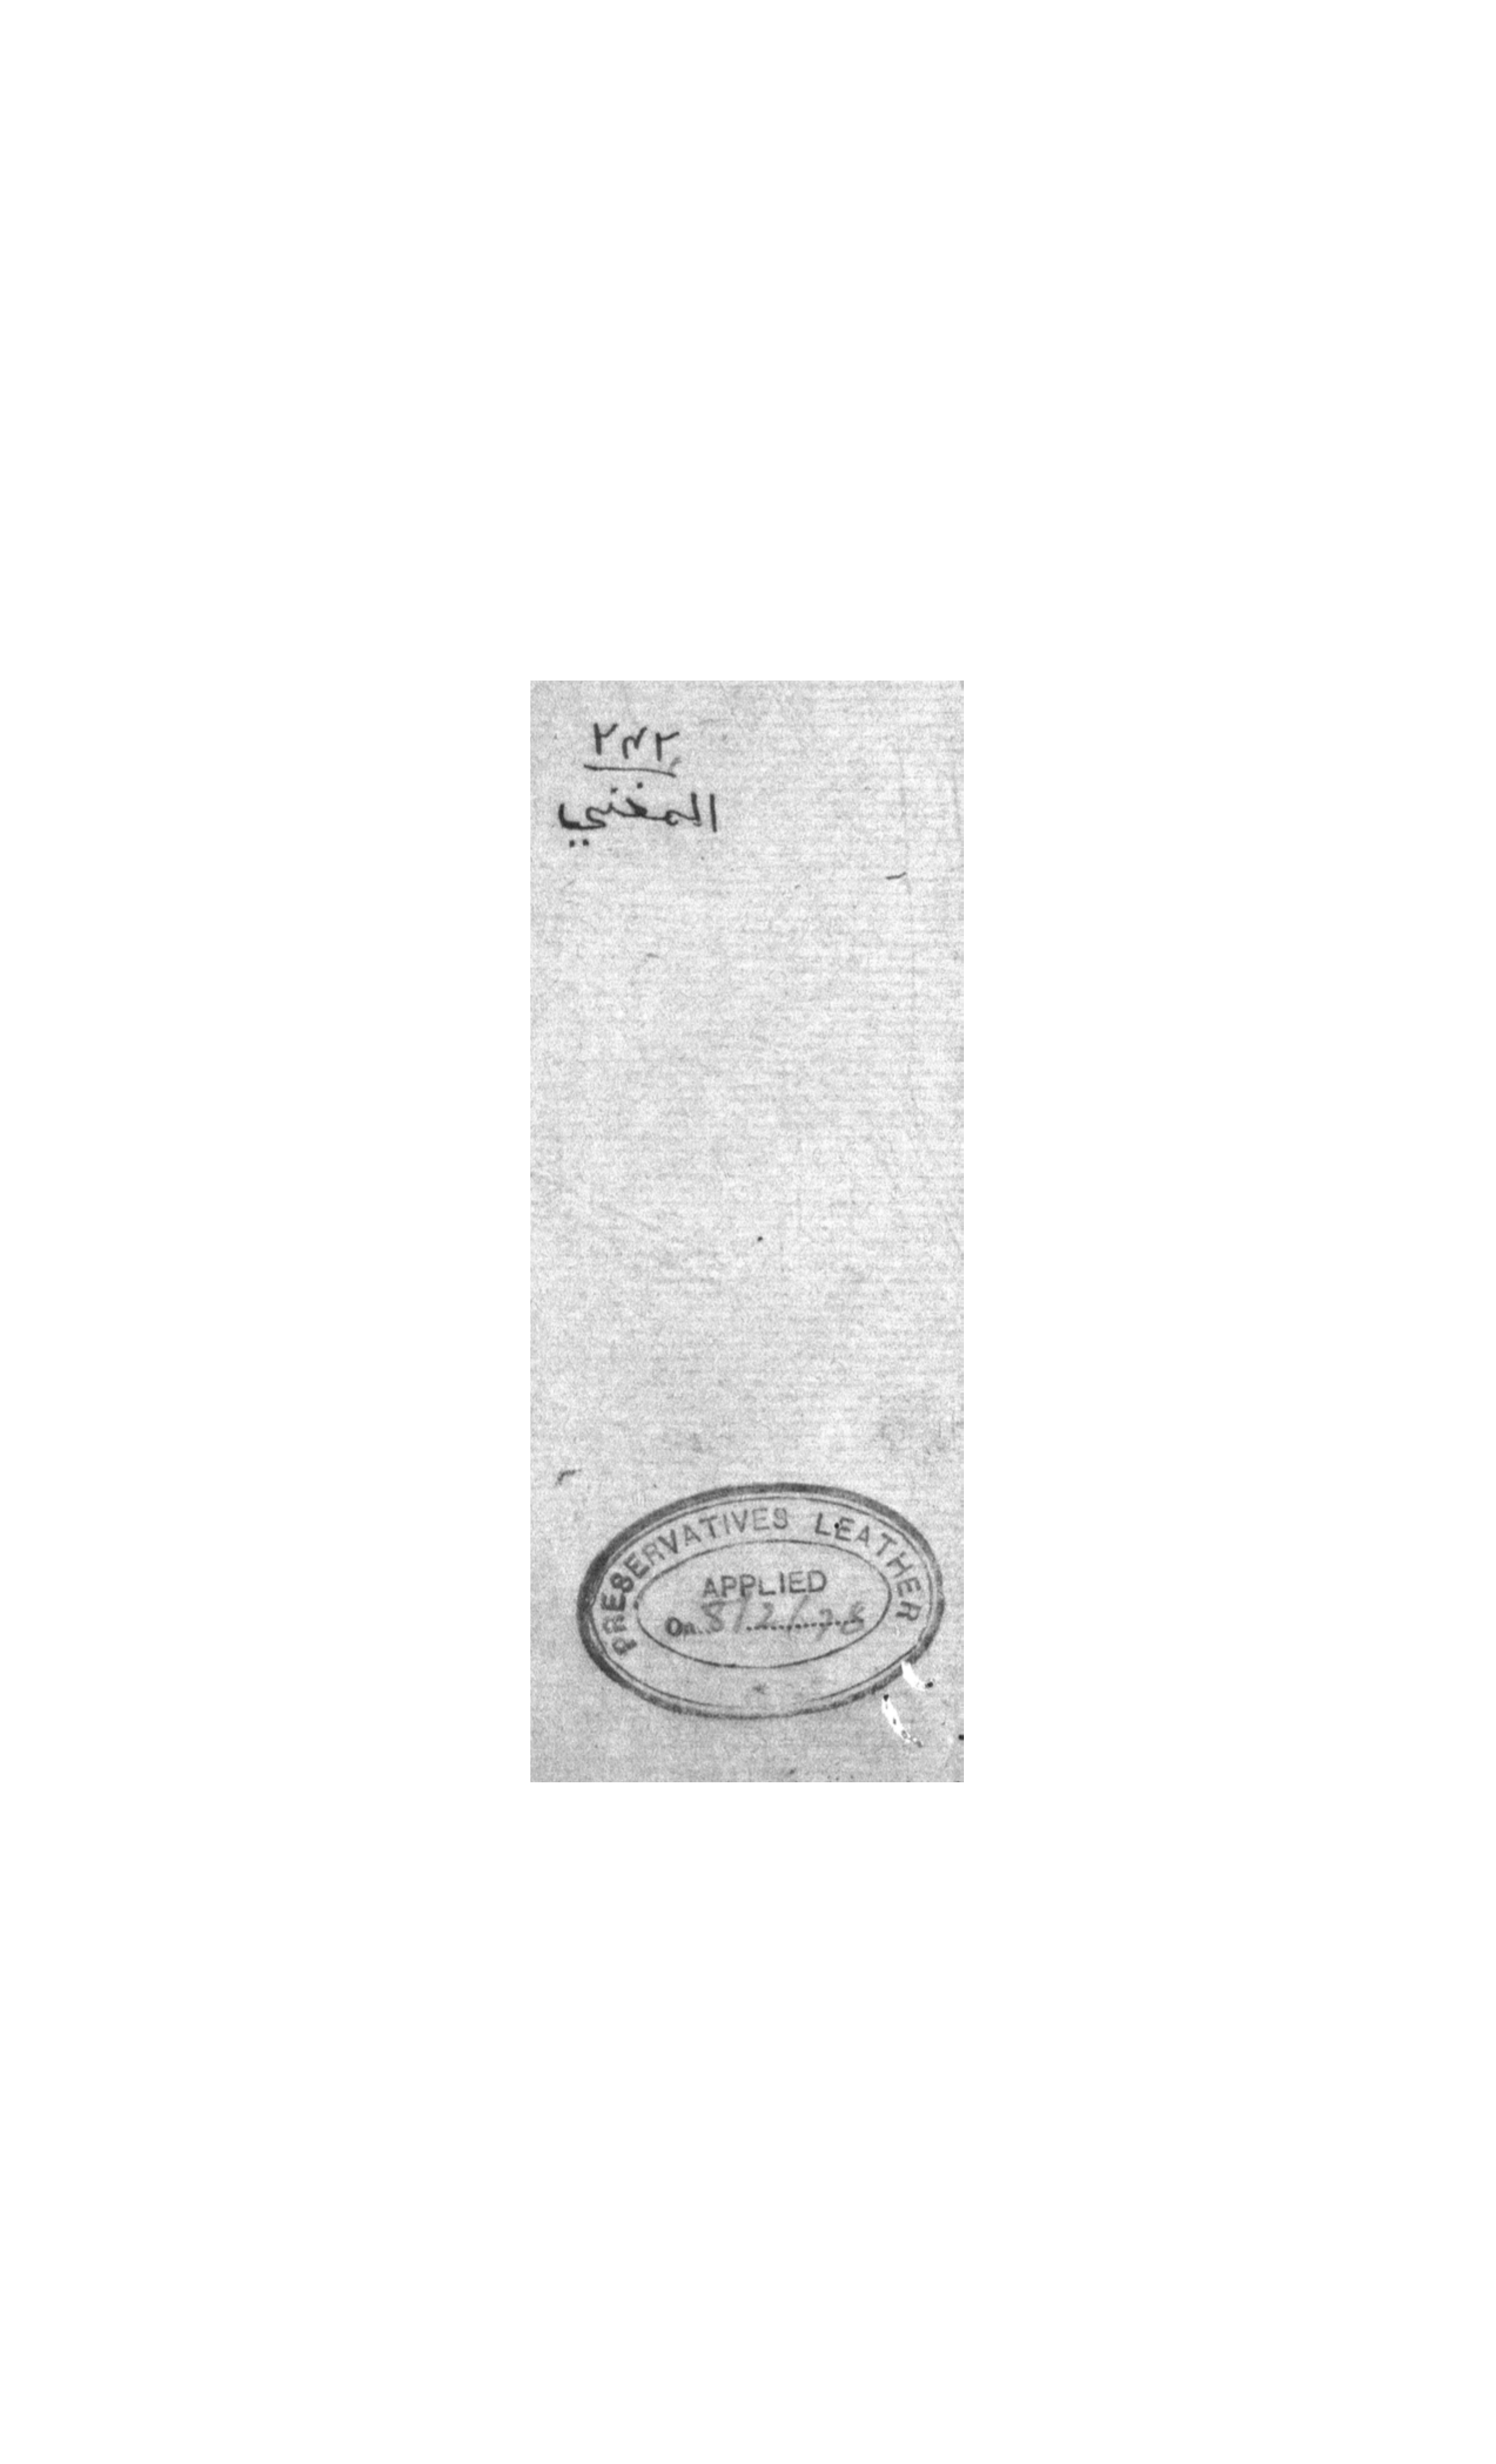 المغني
PRESERVATIVES LEATHER
APPLIED
On 8/2/78